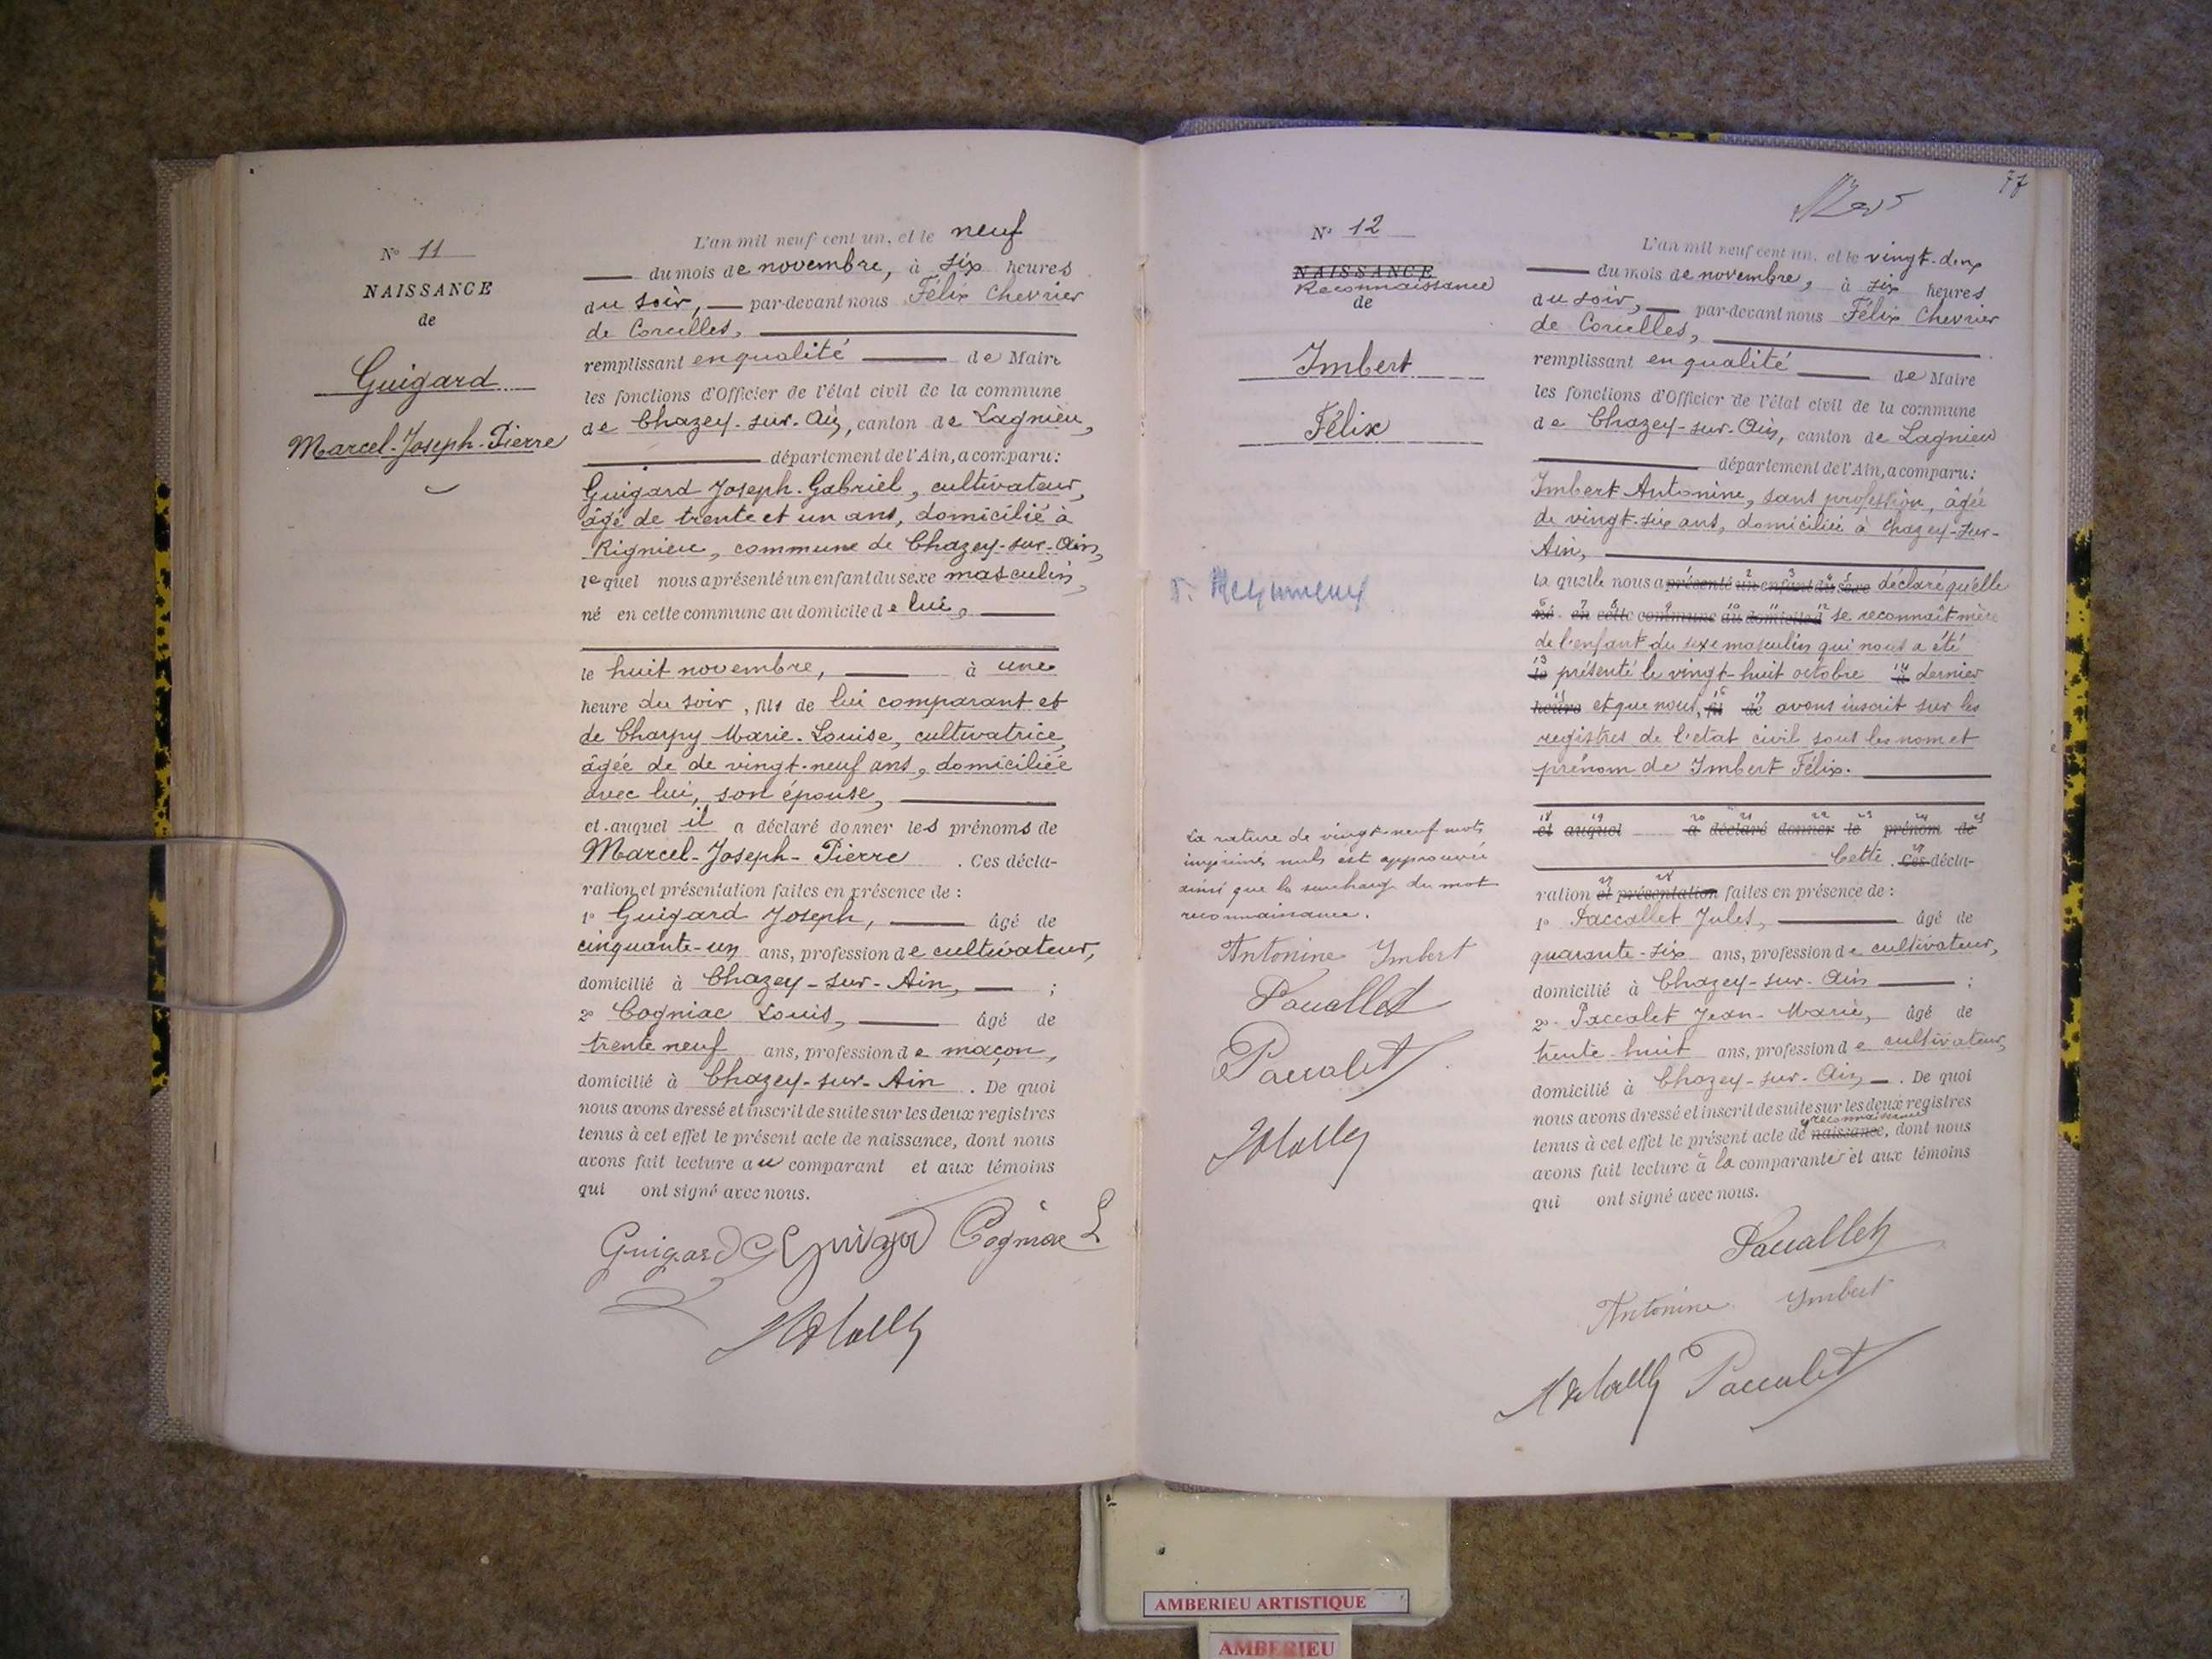 N° 11
NAISSANCE
de
Guigard
Marcel-Joseph-Pierre
L'an mil neuf cent un, et le neuf
du mois de novembre, à six heures
du soir, par-devant nous Félix Chevrier
de Corcelles,
remplissant en qualité de Maire
les fonctions d'Officier de l'état civil de la commune
de Chazey-sur-Ain, canton de Lagnieu,
département de l'Ain, a comparu:
Guigard Joseph-Gabriel, cultivateur,
âgé de trente et un ans, domicilié à
Rignieu, commune de Chazey-sur-Ain,
lequel nous a présenté un enfant du sexe masculin,
né en cette commune au domicile de lui,
le huit novembre, à une
heure du soir, fils de lui comparant et
de Charpy Marie-Louise, cultivatrice,
âgée de de vingt-neuf ans, domiciliée
avec lui, son épouse,
et auquel il a déclaré donner les prénoms de
Marcel-Joseph-Pierre. Ces décla-
ration et présentation faites en présence de :
1° Guigard Joseph, âgé de
cinquante-un ans, profession de cultivateur,
domicilié à Chazey-sur-Ain, ;
2° Cogniac Louis, âgé de
trente neuf ans, profession de maçon,
domicilié à Chazey-sur-Ain. De quoi
nous avons dressé et inscrit de suite sur les deux registres
tenus à cet effet le présent acte de naissance, dont nous
avons fait lecture au comparant et aux témoins
qui ont signé avec nous.
Guigard G Guigard Cogniac L
77
N° 12
NAISSANCE
Reconnaissance
de
Imbert
Félix
L'an mil neuf cent un, et le vingt-deux
du mois de novembre, à six heures
du soir, par-devant nous Félix Chevrier
de Corcelles,
remplissant en qualité de Maire
les fonctions d'Officier de l'état civil de la commune
de Chazey-sur-Ain, canton de Lagnieu
département de l'Ain, a comparu:
Imbert Antonine, sans profession, âgée
de vingt-six ans, domiciliée à Chazey-sur-
Ain,
laquelle nous a présenté un enfant du sexe déclaré qu'elle
né en cette commune au domicile d se reconnaît mère
de l'enfant du sexe masculin qui nous a été
le présenté le vingt-huit octobre à dernier
heure et que nous, fil de avons inscrit sur les
registres de l'état civil sous les nom et
prénom de Imbert Félix.
et auquel a déclaré donner le prénom de
Cette. Ces décla-
ration et présentation faites en présence de :
1° Paccallet Jules, âgé de
quarante-six ans, profession de cultivateur,
domicilié à Chazey-sur-Ain ;
2° Paccalet Jean-Marie, âgé de
trente-huit ans, profession de cultivateur,
domicilié à Chazey-sur-Ain. De quoi
nous avons dressé et inscrit de suite sur les deux registres
reconnaissance
tenus à cet effet le présent acte de naissance, dont nous
avons fait lecture à la comparante et aux témoins
qui ont signé avec nous.
Paccallet
Antonine Imbert
Paccalet
La rature de vingt-neuf mots
imprimés nuls est approuvée
ainsi que la surcharge du mot
reconnaissance.
Antonine Imbert
Paccallet
Paccalet
AMBERIEU ARTISTIQUE
AMBERIEU